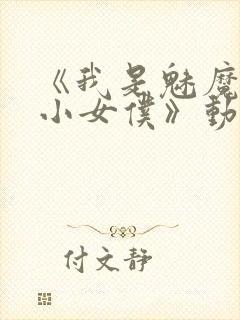 《我是魅魔
小女僕》動
付文靜